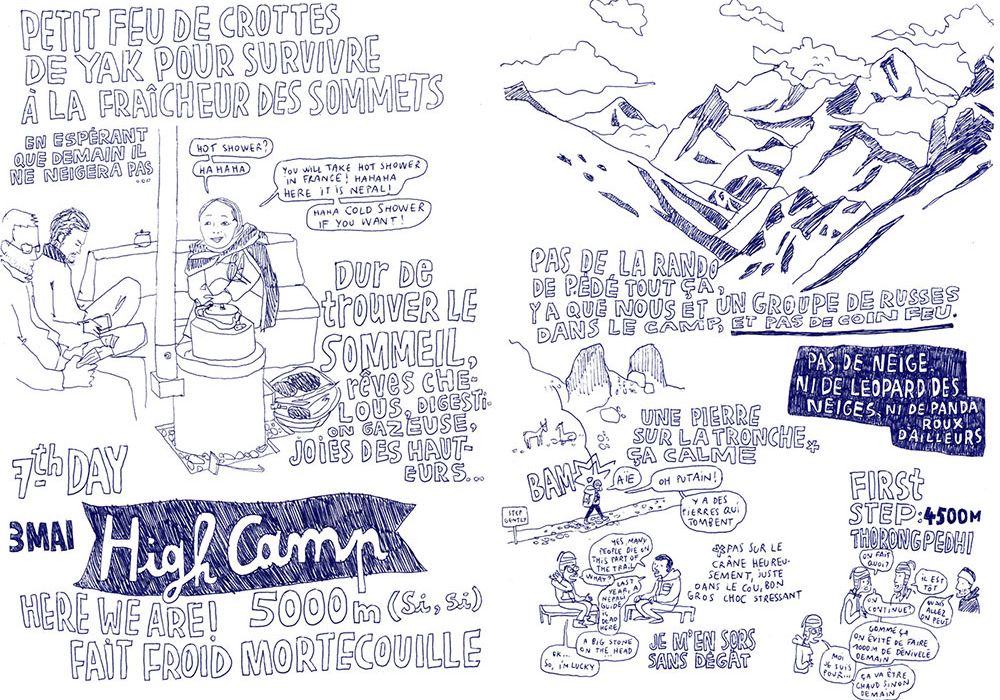 PETIT FEU DE CROTTES
DE YAK POUR SURVIVRE
À LA FRAÎCHEUR DES SOMMETS
EN ESPÉRANT
QUE DEMAIN IL
NE NEIGERA PAS
...
HOT SHOWER?
HAHAHA
YOU WILL TAKE HOT SHOWER
IN FRANCE! HAHAHA
HERE IT IS NEPAL!
HAHA COLD SHOWER
IF YOU WANT!
DUR DE
TROUVER LE
SOMMEIL,
RÊVES CHE-
LOUS, DIGESTI-
ON GAZEUSE,
JOIES DES HAUT-
EURS...
7th DAY
3 MAI
High Camp
HERE WE ARE! 5000 m (Si, Si)
FAIT FROID MORTECOUILLE
PAS DE LA RANDO
DE PÉDÉ TOUT ÇA,
Y A QUE NOUS ET UN GROUPE DE RUSSES
DANS LE CAMP, ET PAS DE COIN FEU.
PAS DE NEIGE,
NI DE LÉOPARD DES
NEIGES, NI DE PANDA
ROUX
D'AILLEURS
UNE PIERRE
SUR LA TRONCHE*
ÇA CALME
BAM
AÏE
OH PUTAIN!
Y A DES
PIERRES QUI
TOMBENT
STEP
GENTLY
YES, MANY
PEOPLE DIE ON
THIS PART OF
THE TRAIL
WHAT?
LAST
YEAR, A
NEPALI
GUIDE
IS
DEAD
HERE
A BIG STONE
ON THE HEAD
OK...
SO, I'M LUCKY
*PAS SUR LE
CRÂNE HEUREU-
SEMENT, JUSTE
DANS LE COU, BON
GROS CHOC STRESSANT
JE M'EN SORS
SANS DÉGÂT
FIRST
STEP: 4500M
THORONG PEDHI
ON FAIT
QUOI?
IL EST
TÔT
ON
CONTINUE?
OUAIS
ALLEZ
ON PEUT
COMME ÇA
ON ÉVITE DE FAIRE
1000M DE DÉNIVELÉ
DEMAIN
MOI
JE SUIS
POUR...
ÇA VA ÊTRE
CHAUD SINON
DEMAIN